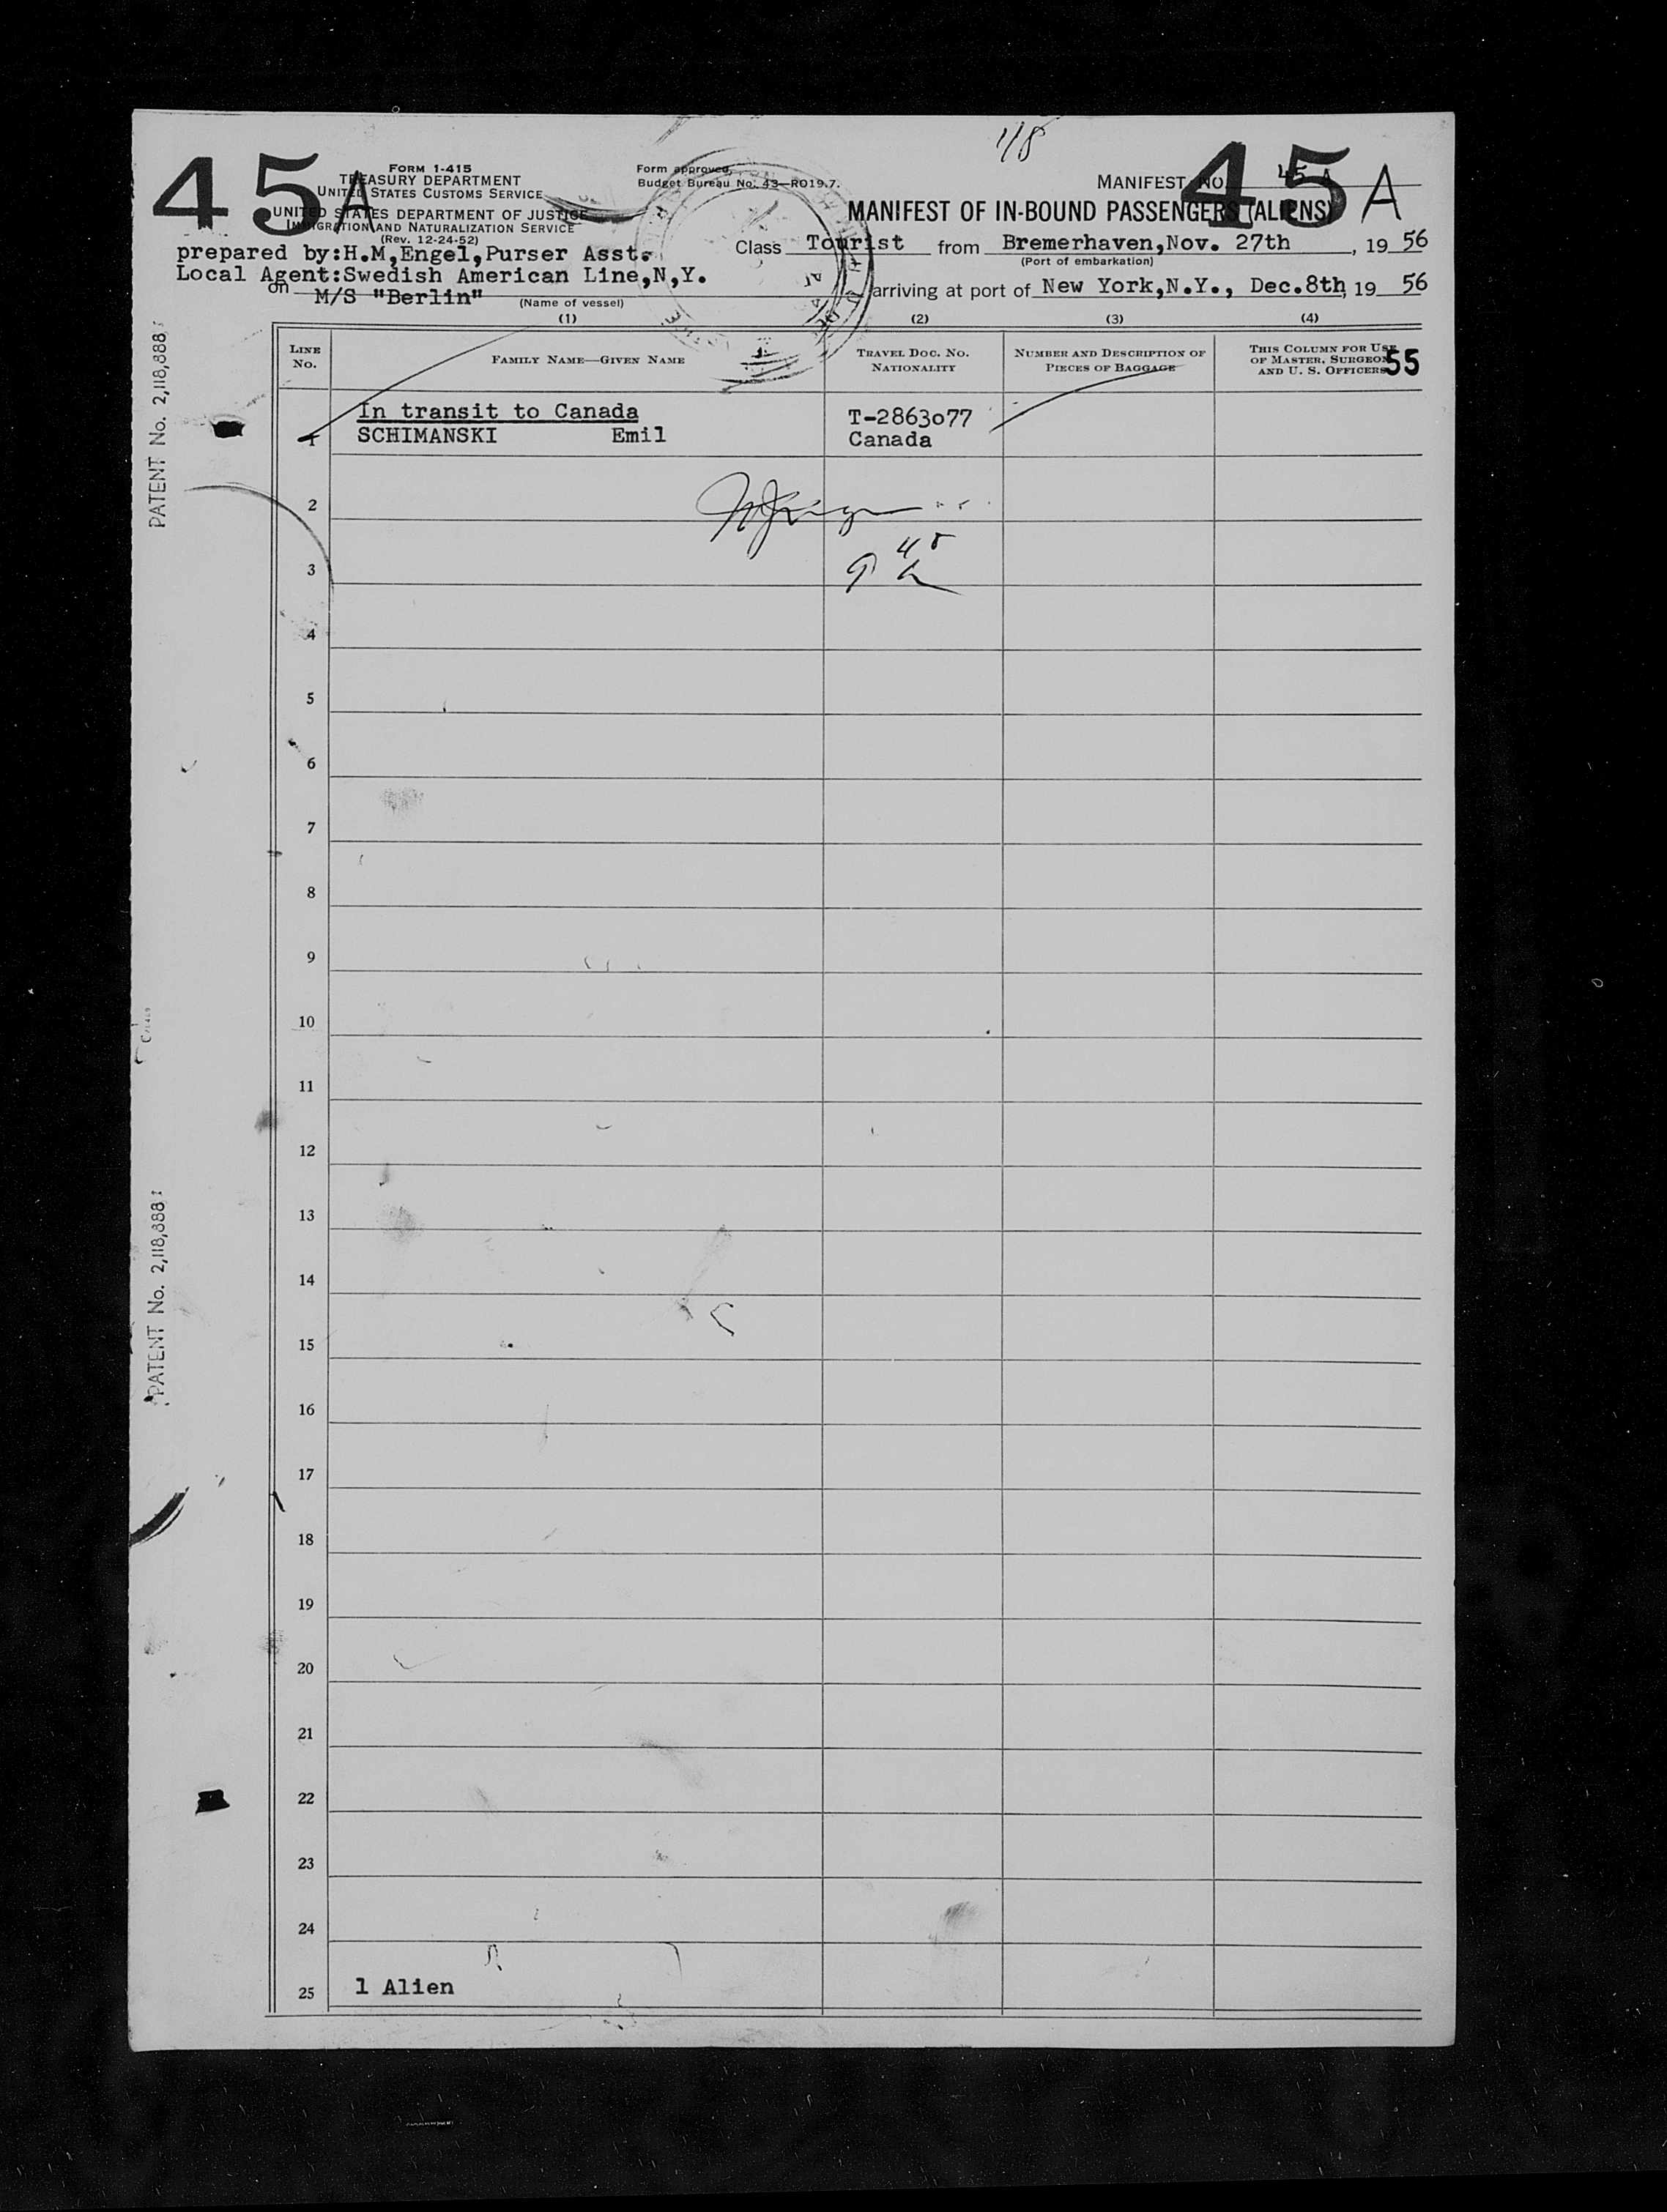 118
45 A
FORM I-415
TREASURY DEPARTMENT
UNITED STATES CUSTOMS SERVICE
UNITED STATES DEPARTMENT OF JUSTICE
IMMIGRATION AND NATURALIZATION SERVICE
(Rev. 12-24-52)
Form approved.
Budget Bureau No. 43—RO19.7.
MANIFEST NO. 45 A
45 A
MANIFEST OF IN-BOUND PASSENGERS (ALIENS)
prepared by:H.M,Engel,Purser Asst.
Class Tourist from Bremerhaven,Nov. 27th, 19 56
(Port of embarkation)
Local Agent:Swedish American Line,N,Y.
on M/S "Berlin" arriving at port of New York,N.Y., Dec.8th, 19 56
(Name of vessel)
(1) (2) (3) (4)
LINE NO.
FAMILY NAME—GIVEN NAME
TRAVEL DOC. NO.
NATIONALITY
NUMBER AND DESCRIPTION OF
PIECES OF BAGGAGE
THIS COLUMN FOR USE
OF MASTER, SURGEON
AND U. S. OFFICERS
55
In transit to Canada T-2863o77
1 SCHIMANSKI Emil Canada
2
3
4
5
6
7
8
9
10
11
12
13
14
15
16
17
18
19
20
21
22
23
24
25 1 Alien
PATENT No. 2,118,888
PATENT No. 2,118,888